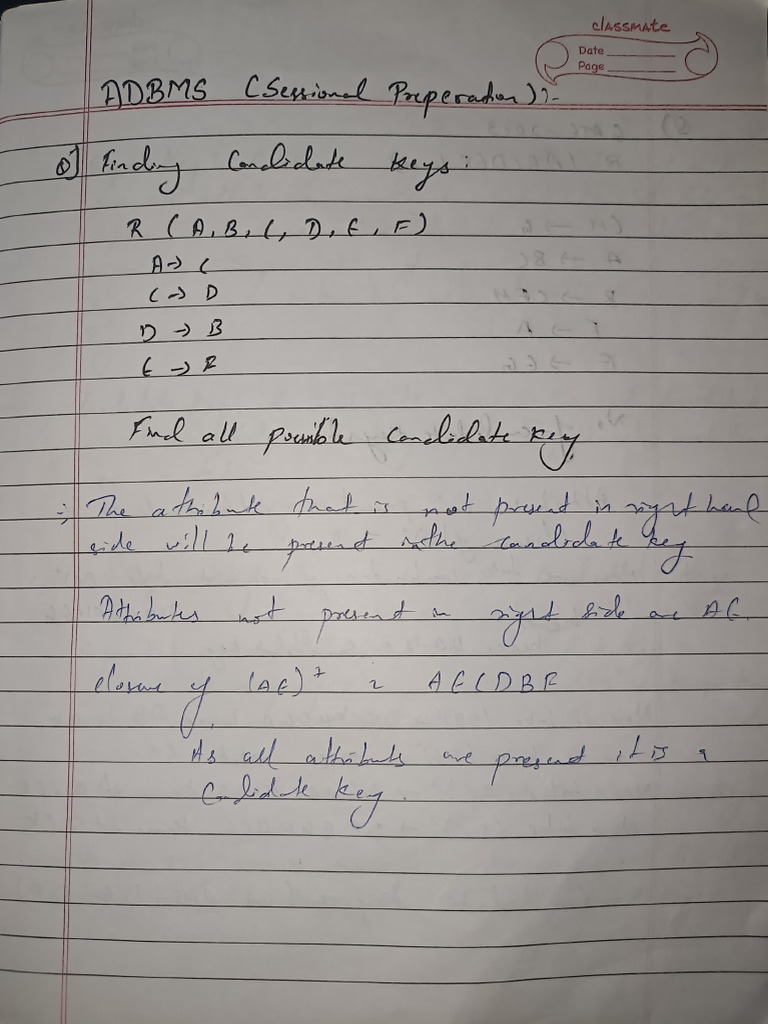 classmate
Date
Page
ADBMS (Sessional Preperation):-
Q] Finding Candidate Keys:
R (A, B, C, D, E, F)
A → C
C → D
D → B
E → F
Find all possible Candidate Key.
The attribute that is not present in right hand
side will be present in the candidate key
Attributes not present in right side are AE.
closure of (AE)+ = AECDBF
As all attributes are present it is a
Candidate Key.